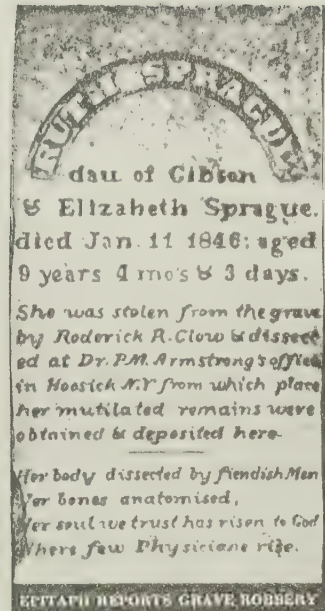 RUTH SPRAGUE
dau of Gibson
& Elizabeth Sprague.
died Jan. 11 1846; aged
9 years 4 mo's & 3 days.
She was stolen from the grave
by Roderick R. Clow & dissect
ed at Dr. P.M. Armstrong's office
in Hoosick N.Y from which place
her mutilated remains were
obtained & deposited here.
Her body dissected by fiendish Men
Her bones anatomised,
Her soul we trust has risen to God
Where few Physicians rise.
EPITAPH REPORTS GRAVE ROBBERY